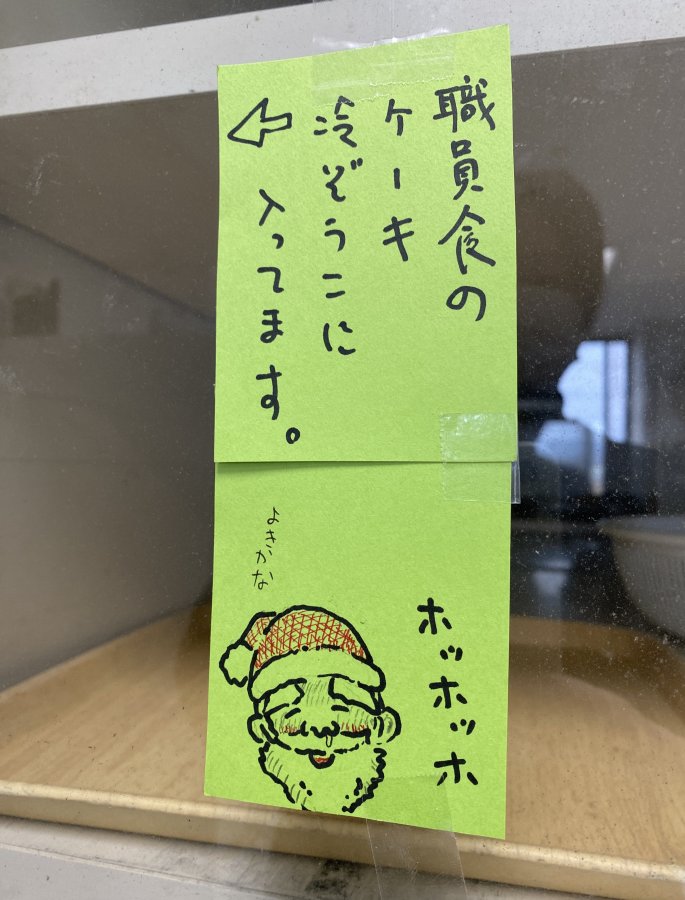 職員食の
ケーキ
冷ぞうこに
入ってます。
ホッホッホ
よきかな